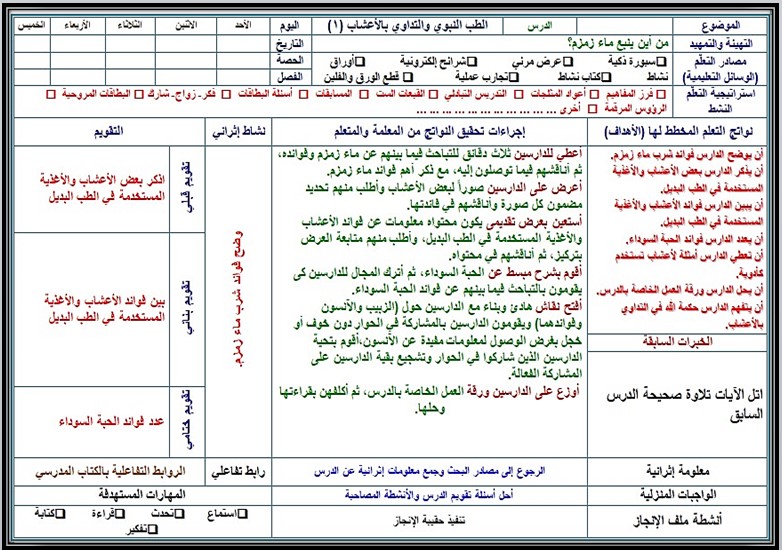 الموضوع
الدرس
الطب النبوي والتداوي بالأعشاب (١)
اليوم
الأحد
الاثنين
الثلاثاء
الأربعاء
الخميس
التهيئة والتمهيد
من أين ينبع ماء زمزم؟
التاريخ
مصادر التعلم
(الوسائل التعليمية)
سبورة ذكية
عرض مرئي
شرائح إلكترونية
أوراق
نشاط
كتاب نشاط
تجارب عملية
قطع الورق والفلين
الحصة
الفصل
استراتيجية التعلم
النشط
فرز المفاهيم
أعواد المثلجات
التدريس التبادلي
القبعات الست
المسابقات
أسئلة البطاقات
فكر- زواج- شارك
البطاقات المروحية
الرؤوس المرقمة
أخرى ... ... ... ... ... ... ... ... ... ... ...
نواتج التعلم المخطط لها (الأهداف)
إجراءات تحقيق النواتج من المعلمة والمتعلم
نشاط إثرائي
التقويم
أن يوضح الدارس فوائد شرب ماء زمزم.
أن يذكر الدارس بعض الأعشاب والأغذية
المستخدمة في الطب البديل.
أن يبين الدارس فوائد الأعشاب والأغذية
المستخدمة في الطب البديل.
أن يعدد الدارس فوائد الحبة السوداء.
أن تعطي الدارس أمثلة لأعشاب تستخدم
كأدوية.
أن يحل الدارس ورقة العمل الخاصة بالدرس.
أن يتفهم الدارس حكمة الله في التداوي
بالأعشاب.
الخبرات السابقة
اتل الآيات تلاوة صحيحة الدرس
السابق
اعطي للدارسين ثلاث دقائق للتباحث فيما بينهم عن ماء زمزم وفوائده،
ثم أناقشهم فيما توصلون إليه، مع ذكر أهم فوائد ماء زمزم.
أعرض على الدارسين صوراً لبعض الأعشاب وأطلب منهم تحديد
مضمون كل صورة وأناقشهم في فائدتها.
أستعين بعرض تقديمى يكون محتواه معلومات عن فوائد الأعشاب
والأغذية المستخدمة في الطب البديل، وأطلب منهم متابعة العرض
بتركيز، ثم أناقشهم في محتواه.
أقوم بشرح مبسط عن الحبة السوداء، ثم أترك المجال للدارسين كى
يقومون بالتباحث فيما بينهم عن فوائد الحبة السوداء.
أفتح نقاش هادئ وبناء مع الدارسين حول (الزبيب والأنسون
وفوائدهما) ويقومون الدارسين بالمشاركة في الحوار دون خوف أو
خجل بغرض الوصول لمعلومات مفيدة عن الأنسون،أقوم بتحية
الدارسين الذين شاركوا في الحوار وتشجيع بقية الدارسين على
المشاركة الفعالة.
أوزع على الدارسين ورقة العمل الخاصة بالدرس، ثم أكلفهن بقراءتها
وحلها.
وضح فوائد شرب ماء زمزم.
تقويم قبلي
اذكر بعض الأعشاب والأغذية
المستخدمة في الطب البديل
تقويم بنائي
بين فوائد الأعشاب والأغذية
المستخدمة في الطب البديل
تقويم ختامي
عدد فوائد الحبة السوداء
معلومة إثرائية
الرجوع إلى مصادر البحث وجمع معلومات إثرائية عن الدرس
رابط تفاعلي
الروابط التفاعلية بالكتاب المدرسي
الواجبات المنزلية
أحل أسئلة تقويم الدرس والأنشطة المصاحبة
المهارات المستهدفة
أنشطة ملف الإنجاز
تنفيذ حقيبة الإنجاز
استماع
تحدث
قراءة
كتابة
تفكير